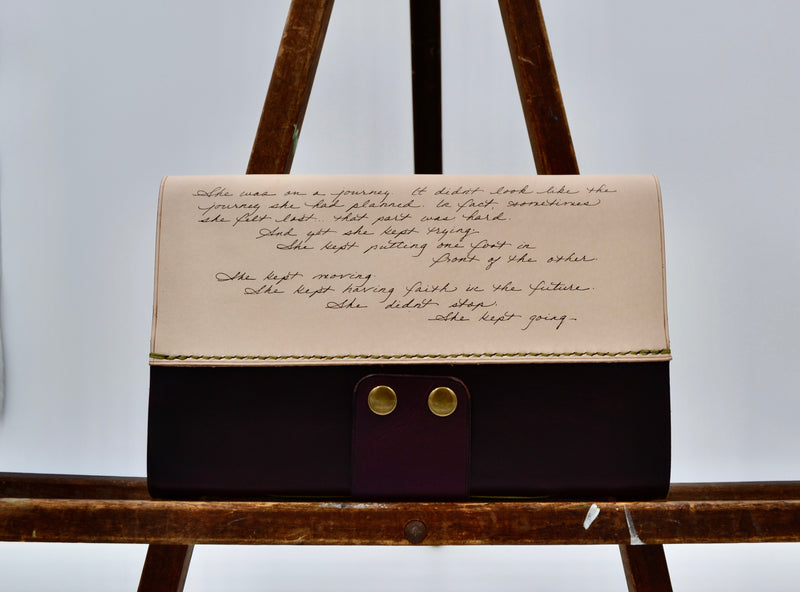 She was on a journey. It didn't look like the
journey she had planned. In fact, sometimes
she felt lost.. that part was hard.
And yet she kept trying.
She kept putting one foot in
front of the other.
She kept moving.
She kept having faith in the future.
She didn't stop.
She kept going.